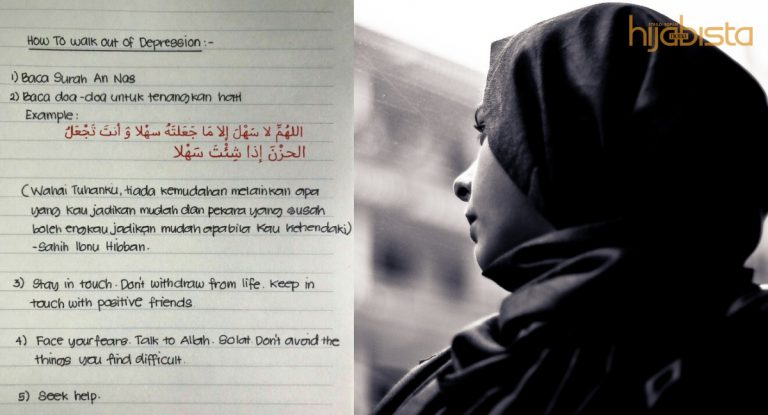 How To Walk out of Depression :-
1) Baca Surah An Nas
2) Baca doa-doa untuk tenangkan hati
Example :
اللهُمَّ لا سَهْلَ إلا مَا جَعَلتَهُ سهْلا وَ أنتَ تَجْعَلُ
الحزْنَ إذا شِئْتَ سَهْلا
(Wahai Tuhanku, tiada kemudahan melainkan apa
yang kau jadikan mudah dan perkara yang susah
boleh engkau jadikan mudah apabila kau kehendaki)
-Sahih Ibnu Hibban.
3) Stay in touch. Don't withdraw from life. Keep in
touch with positive friends
4) Face your fears. Talk to Allah. Solat. Don't avoid the
things you find difficult.
5) Seek help.
hijabista